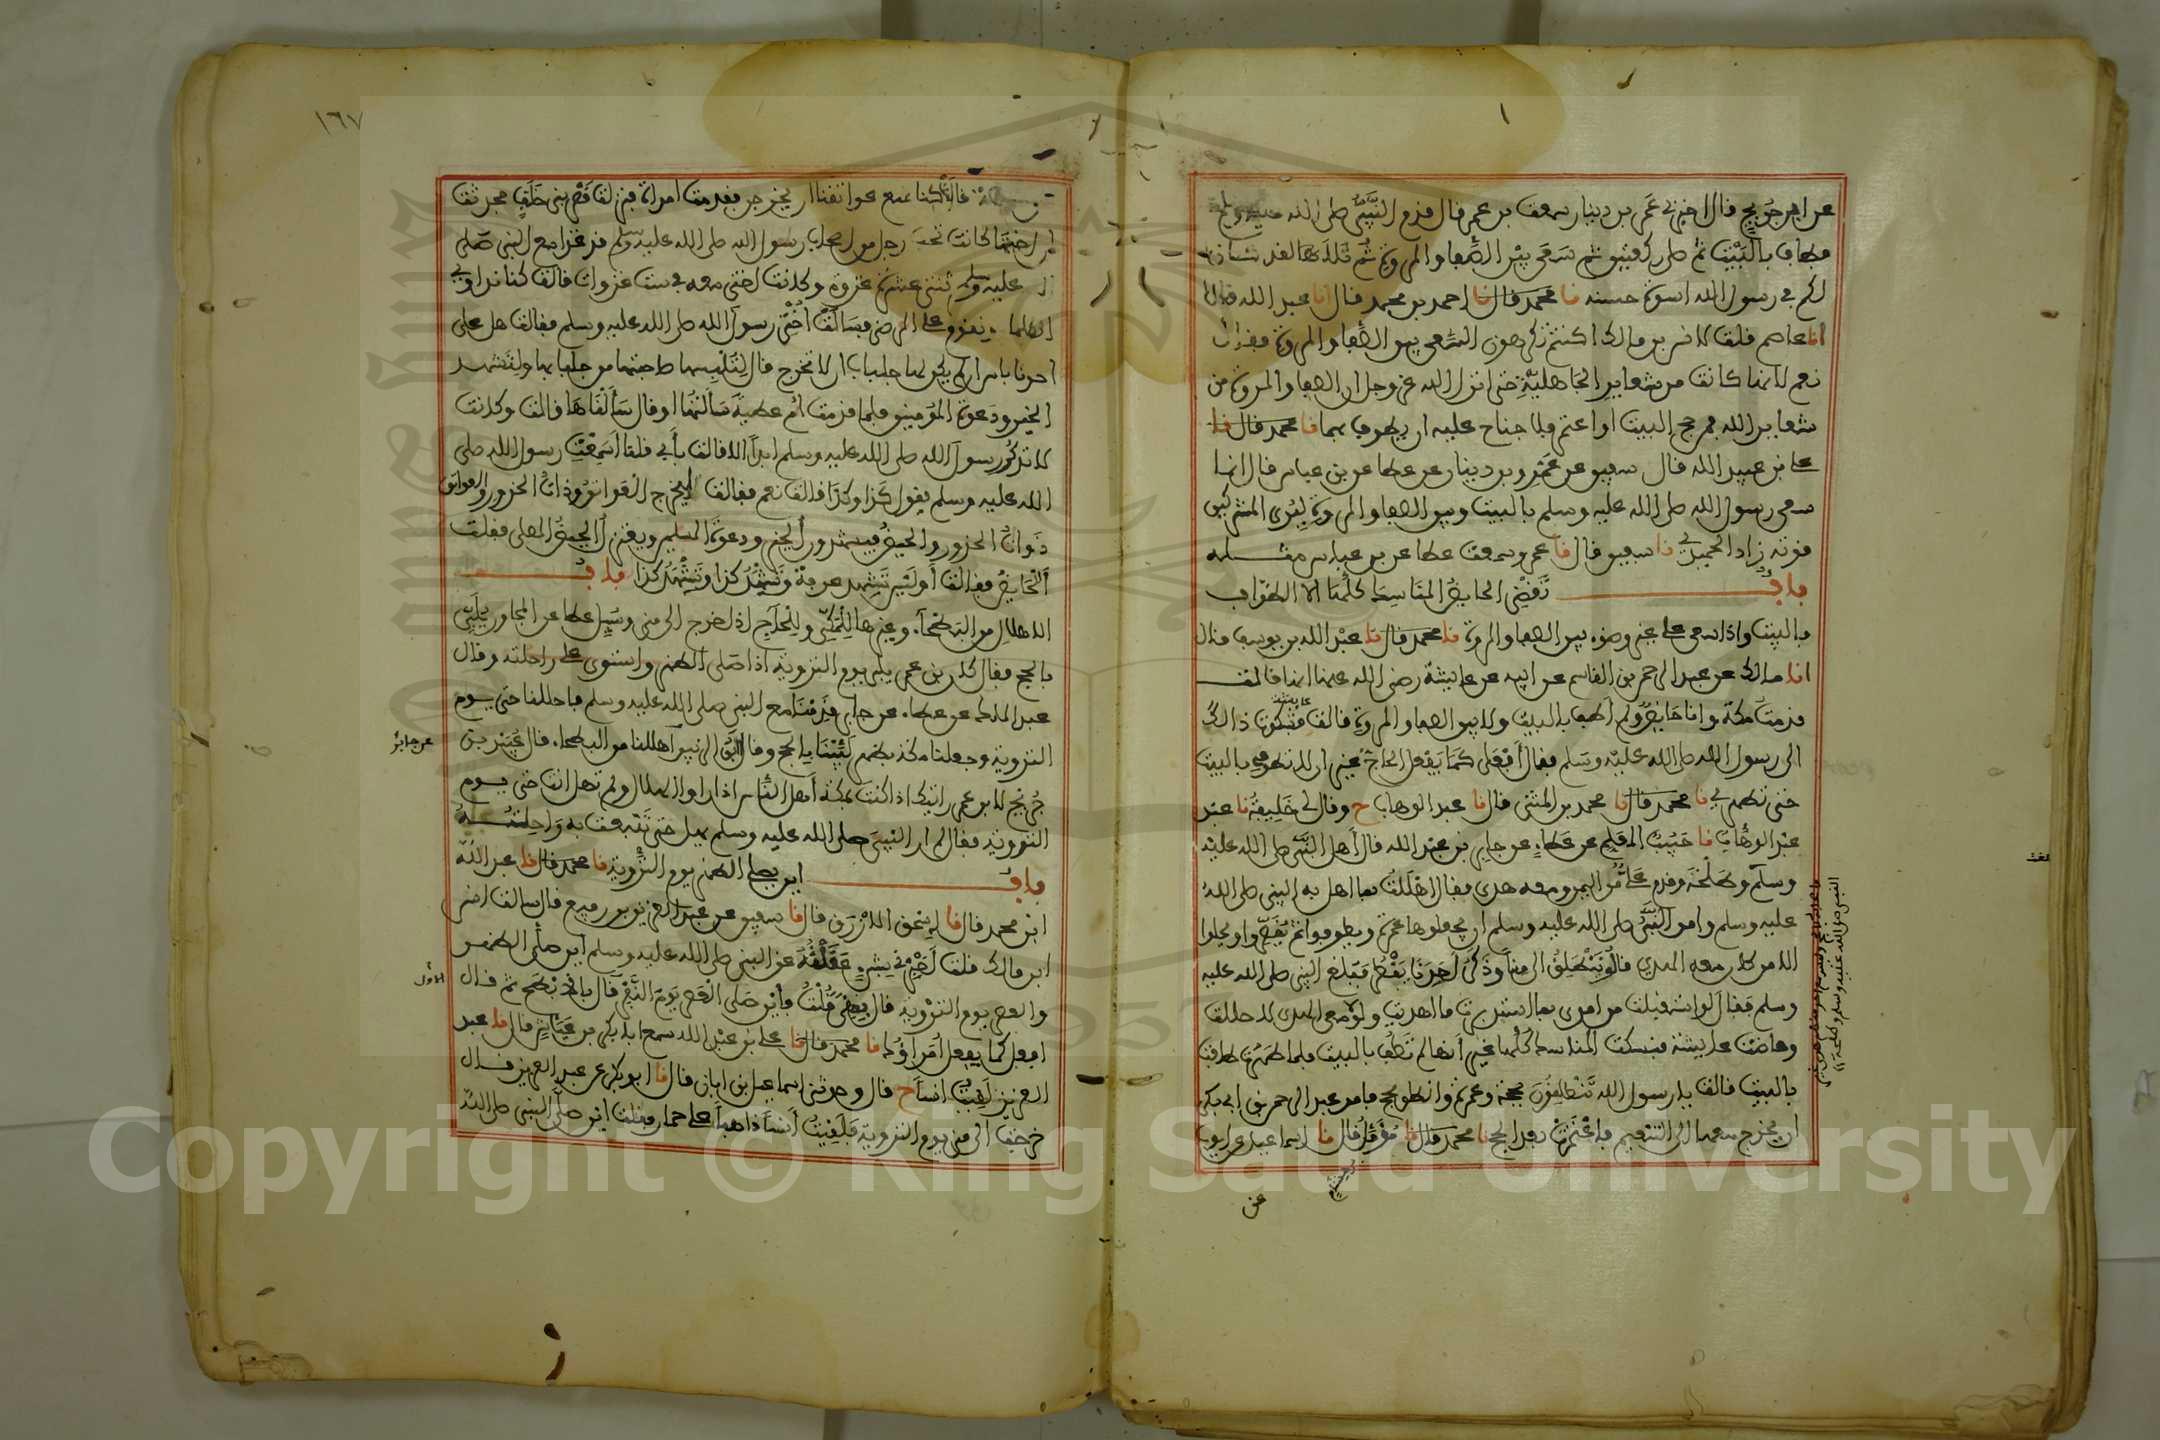 عن ابن جريج قال اخبرني عمرو بن دينار سمعت بن عمر قال قدم النبي صلى الله عليه وسلم
فطاف بالبيت ثم صلى ركعتين ثم سعى بين الصفا والمروة ثم تلا لقد كان
لكم في رسول الله اسوة حسنة نا محمد قال نا احمد بن محمد قال انا عبد الله قال
انا عاصم قلت لانس بن مالك اكنتم تكرهون السعي بين الصفا والمروة فقال
نعم لانها كانت من شعاير الجاهلية حتى انزل الله عز وجل ان الصفا والمروة من
شعاير الله فمن حج البيت او اعتمر فلا جناح عليه ان يطوف بهما نا محمد قال نا
علي بن عبد الله قال سفين عن عمرو بن دينار عن عطا عن بن عباس قال انما
سعى رسول الله صلى الله عليه وسلم بالبيت وبين الصفا والمروة ليري المشركين
قوته زاد الحميدي نا سفين قال نا عمرو سمعت عطا عن بن عباس مثله
باب تقضي الحايض المناسك كلها الا الطواف
بالبيت واذا سعى على غير وضوء بين الصفا والمروة نا محمد قال نا عبد الله بن يوسف قال
انا مالك عن عبد الرحمن بن القاسم عن ابيه عن عايشة رضي الله عنها انها قالت
قدمت مكة وانا حايض ولم اطف بالبيت ولا بين الصفا والمروة قالت فشكوت ذالك
الى رسول الله صلى الله عليه وسلم فقال افعلي كما يفعل الحاج غير ان لا تطوفي بالبيت
حتى تطهري نا محمد قال نا محمد بن المثنى قال نا عبد الوهاب ح وقال لي خليفة نا عبد
عبد الوهاب نا حبيب المعلم عن عطاء عن جابر بن عبد الله قال اهل النبي صلى الله عليه
وسلم وطلحة وقدم علي من اليمن ومعه هدي فقال اهللت بما اهل به النبي صلى الله
عليه وسلم وامر النبي صلى الله عليه وسلم ان يجعلوها عمرة ويطوفوا ثم يقصروا ويحلوا
الا من كان معه الهدي قالوا ننطلق الى منا وذكر احدنا يقطر فبلغ النبي صلى الله عليه
وسلم فقال لو استقبلت من امري ما استدبرت ما اهديت ولولا معي الهدي لاحللت
وحاضت عايشة فنسكت المناسك كلها غير انها لم تطف بالبيت فلما طهرت طافت
بالبيت قالت يا رسول الله تنطلقون بحجة وعمرة وانطلق بحج فامر عبد الرحمن بن ابي بكر
ان يخرج معها الى التنعيم فاعتمرت بعد الحج نا محمد قال نا مؤمل قال نا اسماعيل عن ايوب
عن
١٦٧
قالت كنا نمنع عواتقنا ان يخرجن فقدمت امراة فنزلت قصر بني خلف فحدثت
ان اختها كانت تحت رجل من اصحاب رسول الله صلى الله عليه وسلم قد غزا مع النبي صلى
الله عليه وسلم ثنتي عشرة غزوة وكانت اختي معه في ست غزوات قالت كنا نداوي
الكلما ونقوم على المرضى فسالت اختي رسول الله صلى الله عليه وسلم فقالت هل على
احدنا باس ان لم يكن لها جلباب ان لا تخرج قال لتلبسها صاحبتها من جلبابها ولتشهد
الخير ودعوة المؤمنين فلما قدمت ام عطية سالتها او قال سالناها قالت وكانت
لا تذكر رسول الله صلى الله عليه وسلم ابدا الا قالت بأبي فقلنا اسمعت رسول الله صلى
الله عليه وسلم يقول كذا وكذا قالت نعم فقالت ليخرج العواتق وذوات الخدور والعواتق
ذوات الخدور والحيض فيشهدن الخير ودعوة المسلمين ويعتزل الحيض المصلى فقلت
الحايض فقالت اوليس تشهد عرفة وتشهد كذا وتشهد كذا باب
الاهلال من البطحاء وغيرها للمكي وللحاج اذا خرج الى منى وسيل عطا عن المجاور يلبي
بالحج فقال كان بن عمر يلبي يوم التروية اذا صلى الظهر واستوى على راحلته وقال
عبد الملك عن عطا عن جابر قدمنا مع النبي صلى الله عليه وسلم فاحللنا حتى يوم
التروية وجعلنا مكة بظهر لبينا بالحج وقال ابو الزبير اهللنا من البطحا وقال عبيد بن
عن جابر
جريج لابن عمر رايتك اذا كنت بمكة اهل الناس اذا راوا الهلال ولم تهل انت حتى يوم
التروية فقال لم ار النبي صلى الله عليه وسلم يهل حتى تنبعث به راحلته
باب اين يصلي الظهر يوم التروية نا محمد قال نا عبد الله
ابن محمد قال نا اسحق الازرق قال نا سفين عن عبد العزيز بن رفيع قال سالت انس
ابن مالك قلت اخبرني بشيء عقلته عن النبي صلى الله عليه وسلم اين صلى الظهر
والعصر يوم التروية قال بمنى قلت فاين صلى العصر يوم النفر قال بالابطح ثم قال
افعل كما يفعل امراؤك نا محمد قال نا علي بن عبد الله سمع ابا بكر بن عياش قال نا عبد
العزيز لقيت انسا ح قال وحدثني اسماعيل بن ابان قال نا ابو بكر عن عبد العزيز قال
خرجت الى منى يوم التروية فلقيت انسا ذاهبا على حمار فقلت اين صلى النبي صلى الله
Copyright © King Saud University